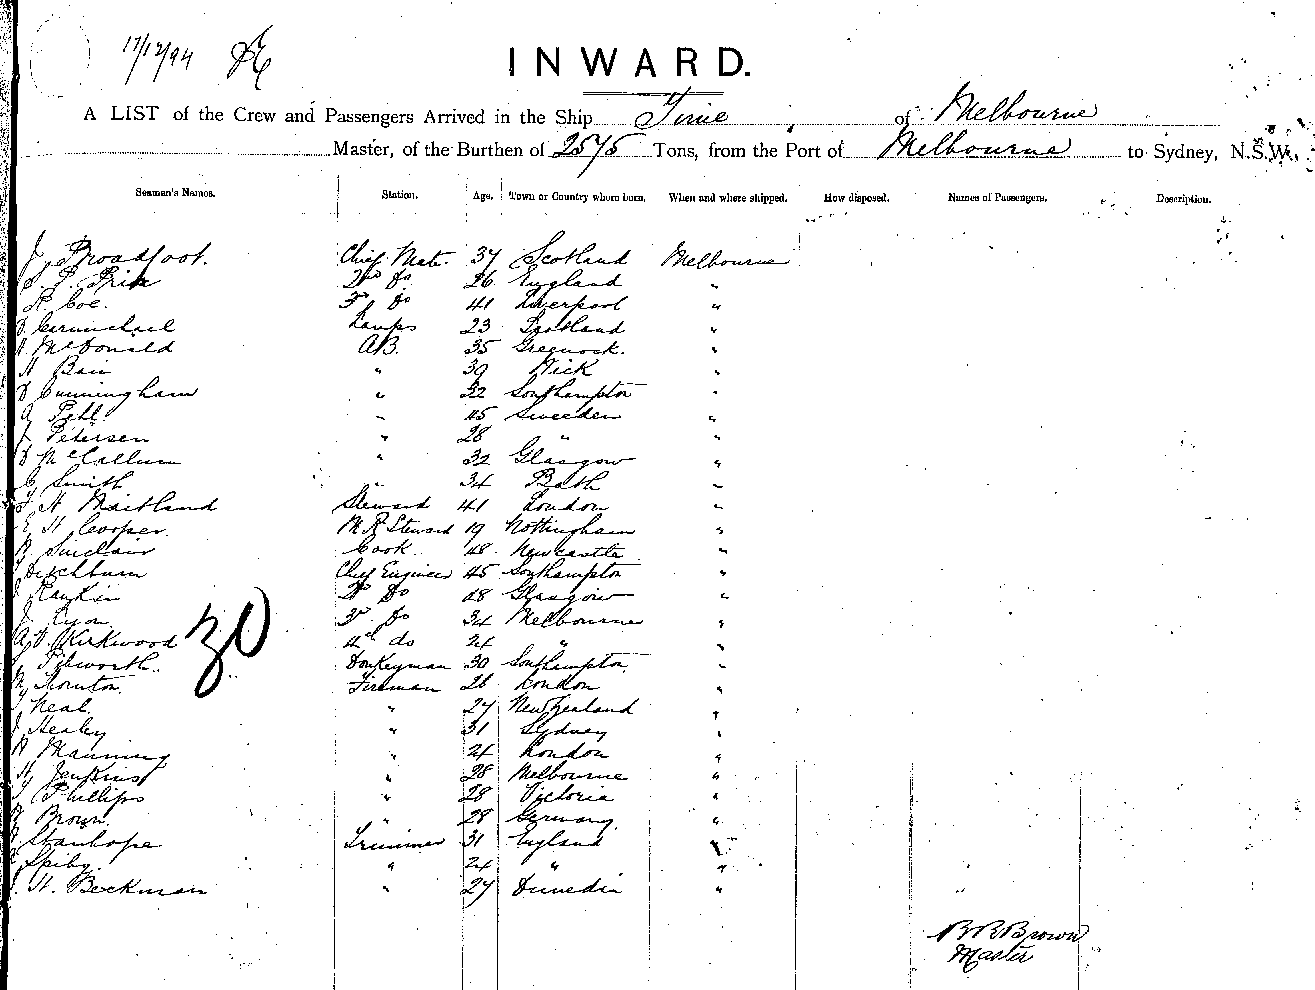 17/12/94
INWARD.
A LIST of the Crew and Passengers Arrived in the Ship Time of Melbourne
Master, of the Burthen of 2575 Tons, from the Port of Melbourne to Sydney, N.S.W.,
Seaman's Names. Station. Age. Town or Country whom born. When and where shipped. How disposed. Names of Passengers. Description.
J Broadfoot. Chief Mate 37 Scotland Melbourne
Price 2nd do 26 England "
R Coe 3rd do 41 Liverpool "
D Carmichael Lamps 23 Scotland "
A McDonald AB. 35 Greenock. "
H Bain " 39 Wick "
D Cunningham " 32 Southampton "
A Pehl " 45 Sweeden "
J Petersen " 28 " "
D McCallum " 32 Glasgow "
C Smith " 34 Bath "
H Maitland Steward 41 London "
E H Cooper M.R Steward 19 Nottingham "
R Sinclair Cook 48 Newcastle "
Ditchburn Chief Engineer 45 Southampton "
Rankin 2nd do 48 Glasgow "
J Lyon 3rd do 34 Melbourne "
Kirkwood 4th do 24 " "
Titworth Donkeyman 30 Southampton "
Thornton Fireman 26 London "
Neal " 27 New Zealand "
J Healey " 31 Sydney "
Manning " 24 London "
H Jenkins " 28 Melbourne "
Phillips " 28 Victoria "
Brown " 28 Germany "
Stanhope Trimmer 31 England "
Spiby " 24 " "
H. Beckman " 27 Dunedin "
30
B R Brown
Master